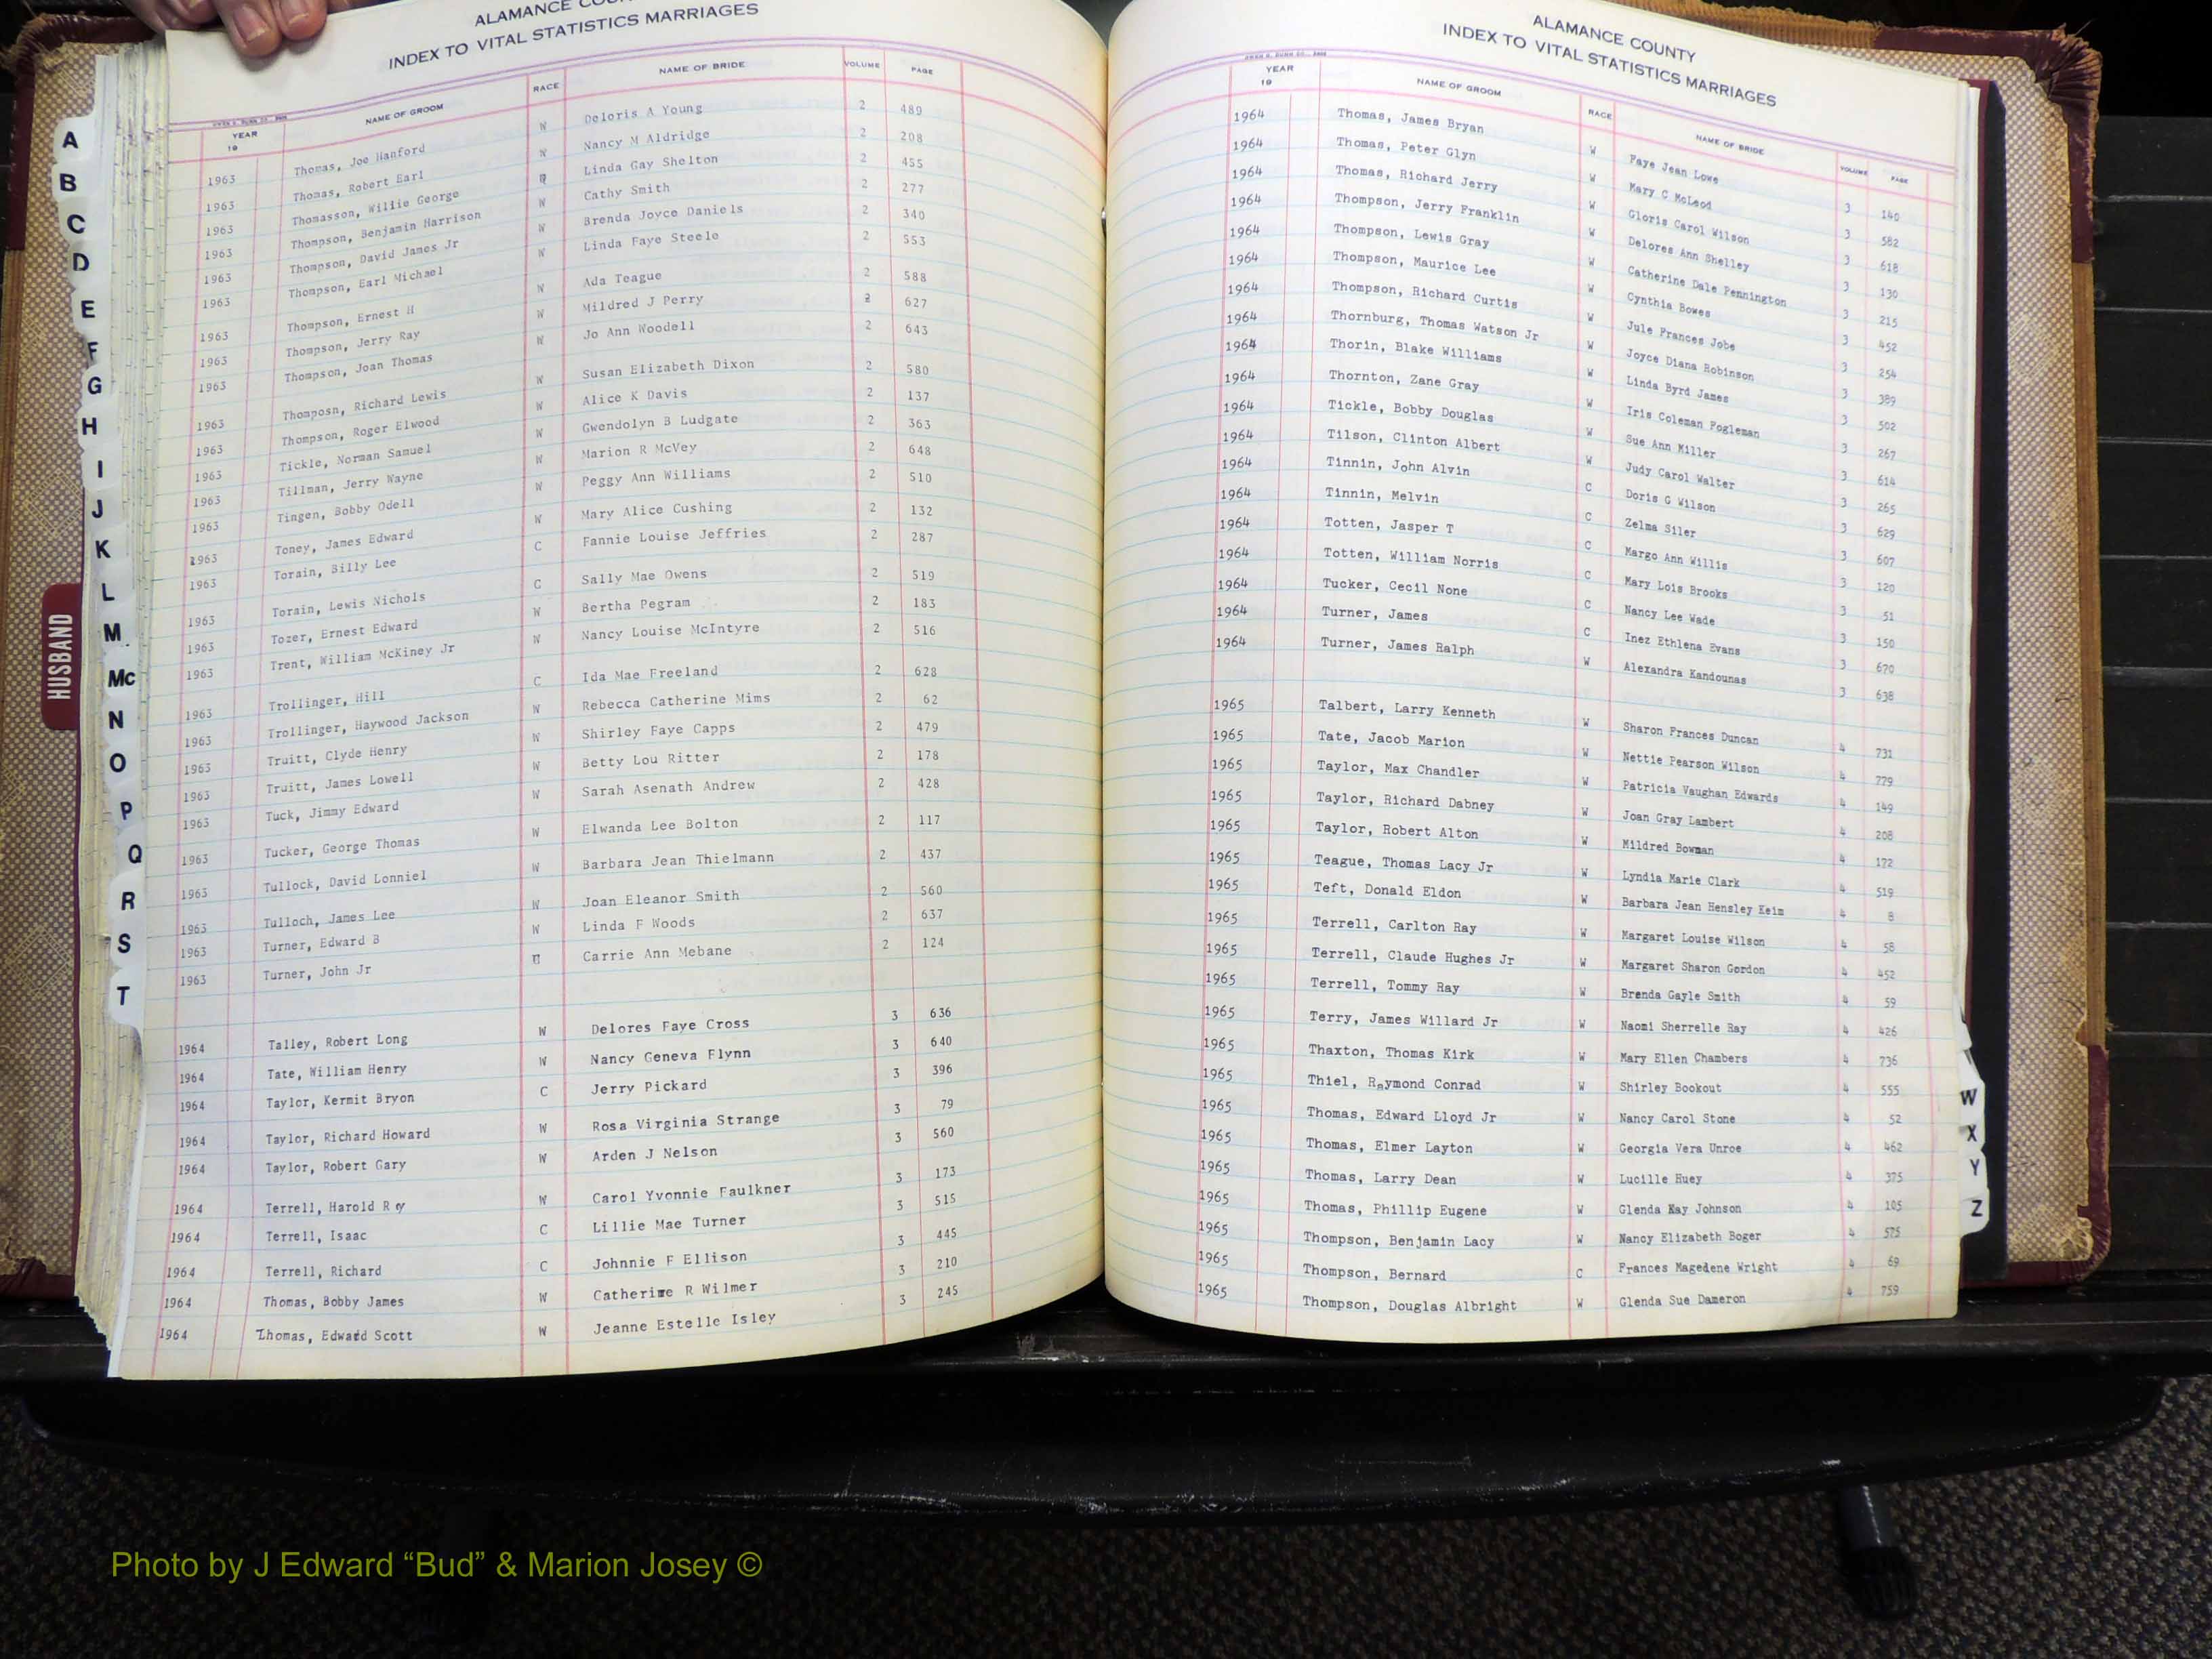 ALAMANCE COUN
INDEX TO VITAL STATISTICS MARRIAGES
YEAR 19 NAME OF GROOM RACE NAME OF BRIDE VOLUME PAGE
1963 Thomas, Joe Hanford W Deloris A Young 2 489
1963 Thomas, Robert Earl W Nancy M Aldridge 2 208
1963 Thomasson, Willie George Linda Gay Shelton 2 455
1963 Thompson, Benjamin Harrison W Cathy Smith 2 277
1963 Thompson, David James Jr W Brenda Joyce Daniels 2 340
1963 Thompson, Earl Michael W Linda Faye Steele 2 553
1963 Thompson, Ernest H W Ada Teague 2 588
1963 Thompson, Jerry Ray W Mildred J Perry 2 627
1963 Thompson, Joan Thomas W Jo Ann Woodell 2 643
1963 Thomposn, Richard Lewis W Susan Elizabeth Dixon 2 580
1963 Thompson, Roger Elwood W Alice K Davis 2 137
1963 Tickle, Norman Samuel W Gwendolyn B Ludgate 2 363
1963 Tillman, Jerry Wayne W Marion R McVey 2 648
1963 Tingen, Bobby Odell W Peggy Ann Williams 2 510
1963 Toney, James Edward W Mary Alice Cushing 2 132
1963 Torain, Billy Lee C Fannie Louise Jeffries 2 287
1963 Torain, Lewis Nichols C Sally Mae Owens 2 519
1963 Tozer, Ernest Edward W Bertha Pegram 2 183
1963 Trent, William McKiney Jr W Nancy Louise McIntyre 2 516
1963 Trollinger, Hill C Ida Mae Freeland 2 628
1963 Trollinger, Haywood Jackson W Rebecca Catherine Mims 2 62
1963 Truitt, Clyde Henry W Shirley Faye Capps 2 479
1963 Truitt, James Lowell W Betty Lou Ritter 2 178
1963 Tuck, Jimmy Edward W Sarah Asenath Andrew 2 428
1963 Tucker, George Thomas W Elwanda Lee Bolton 2 117
1963 Tullock, David Lonniel W Barbara Jean Thielmann 2 437
1963 Tulloch, James Lee W Joan Eleanor Smith 2 560
1963 Turner, Edward B W Linda F Woods 2 637
1963 Turner, John Jr Carrie Ann Mebane 2 124
1964 Talley, Robert Long W Delores Faye Cross 3 636
1964 Tate, William Henry W Nancy Geneva Flynn 3 640
1964 Taylor, Kermit Bryon C Jerry Pickard 3 396
1964 Taylor, Richard Howard W Rosa Virginia Strange 3 79
1964 Taylor, Robert Gary W Arden J Nelson 3 560
1964 Terrell, Harold Roy W Carol Yvonnie Faulkner 3 173
1964 Terrell, Isaac C Lillie Mae Turner 3 515
1964 Terrell, Richard C Johnnie F Ellison 3 445
1964 Thomas, Bobby James W Catherine R Wilmer 3 210
1964 Thomas, Edward Scott W Jeanne Estelle Isley 3 245
A
B
C
D
E
F
G
H
I
J
K
L
M
Mc
N
O
P
Q
R
S
T
HUSBAND
ALAMANCE COUNTY
INDEX TO VITAL STATISTICS MARRIAGES
YEAR 19 NAME OF GROOM RACE NAME OF BRIDE VOLUME PAGE
1964 Thomas, James Bryan W Faye Jean Lowe 3 140
1964 Thomas, Peter Glyn W Mary C McLeod 3 582
1964 Thomas, Richard Jerry W Gloris Carol Wilson 3 618
1964 Thompson, Jerry Franklin W Delores Ann Shelley 3 130
1964 Thompson, Lewis Gray W Catherine Dale Pennington 3 215
1964 Thompson, Maurice Lee W Cynthia Bowes 3 452
1964 Thompson, Richard Curtis W Jule Frances Jobe 3 254
1964 Thornburg, Thomas Watson Jr W Joyce Diana Robinson 3 389
1964 Thorin, Blake Williams W Linda Byrd James 3 502
1964 Thornton, Zane Gray W Iris Coleman Fogleman 3 267
1964 Tickle, Bobby Douglas W Sue Ann Miller 3 614
1964 Tilson, Clinton Albert W Judy Carol Walter 3 265
1964 Tinnin, John Alvin C Doris G Wilson 3 629
1964 Tinnin, Melvin C Zelma Siler 3 607
1964 Totten, Jasper T C Margo Ann Willis 3 120
1964 Totten, William Norris C Mary Lois Brooks 3 51
1964 Tucker, Cecil None C Nancy Lee Wade 3 150
1964 Turner, James C Inez Ethlena Evans 3 670
1964 Turner, James Ralph W Alexandra Kandounas 3 638
1965 Talbert, Larry Kenneth W Sharon Frances Duncan 4 731
1965 Tate, Jacob Marion W Nettie Pearson Wilson 4 779
1965 Taylor, Max Chandler W Patricia Vaughan Edwards 4 149
1965 Taylor, Richard Dabney W Joan Gray Lambert 4 208
1965 Taylor, Robert Alton W Mildred Bowman 4 172
1965 Teague, Thomas Lacy Jr W Lyndia Marie Clark 4 519
1965 Teft, Donald Eldon W Barbara Jean Hensley Keim 4 8
1965 Terrell, Carlton Ray W Margaret Louise Wilson 4 58
1965 Terrell, Claude Hughes Jr W Margaret Sharon Gordon 4 452
1965 Terrell, Tommy Ray W Brenda Gayle Smith 4 59
1965 Terry, James Willard Jr W Naomi Sherrelle Ray 4 426
1965 Thaxton, Thomas Kirk W Mary Ellen Chambers 4 736
1965 Thiel, Raymond Conrad W Shirley Bookout 4 555
1965 Thomas, Edward Lloyd Jr W Nancy Carol Stone 4 52
1965 Thomas, Elmer Layton W Georgia Vera Unroe 4 462
1965 Thomas, Larry Dean W Lucille Huey 4 375
1965 Thomas, Phillip Eugene W Glenda Kay Johnson 4 105
1965 Thompson, Benjamin Lacy W Nancy Elizabeth Boger 4 575
1965 Thompson, Bernard C Frances Magedene Wright 4 69
1965 Thompson, Douglas Albright W Glenda Sue Dameron 4 759
W
X
Y
Z
Photo by J Edward “Bud” & Marion Josey ©